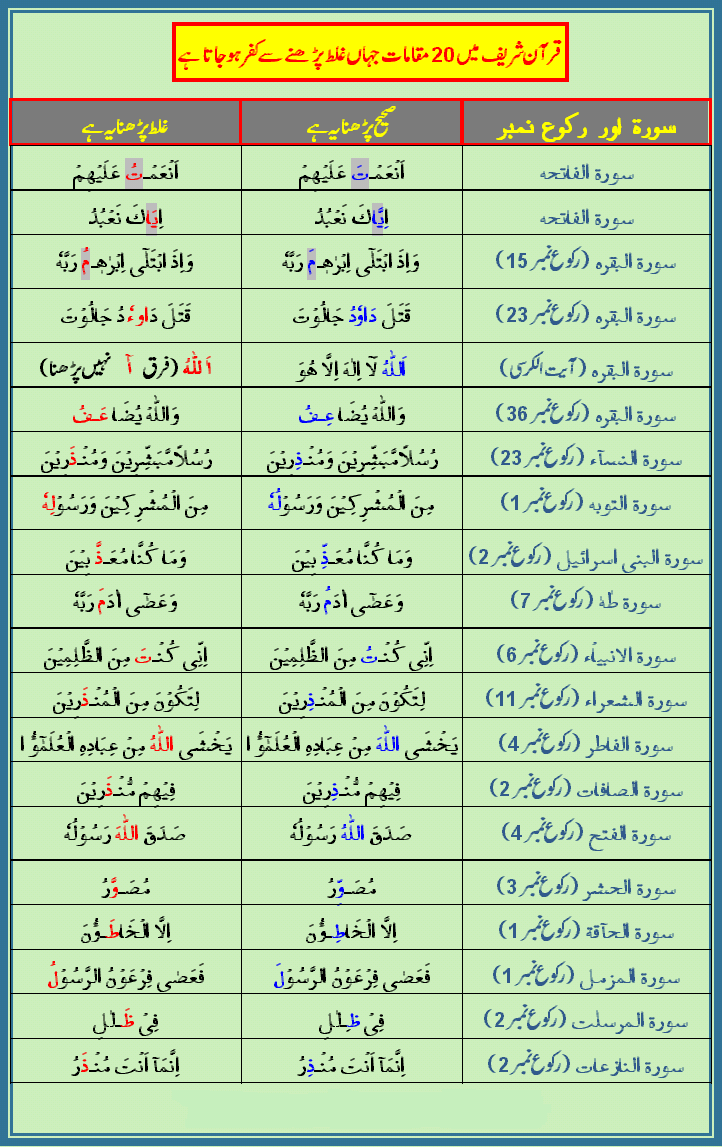 قرآن شریف میں 20 مقامات جہاں غلط پڑھنے سے کفر ہو جاتا ہے
سورۃ اور رکوع نمبر	صحیح پڑھنا یہ ہے	غلط پڑھنا یہ ہے
سورۃ الفاتحہ	اَنْعَمْـتَ عَلَيْهِمْ	اَنْعَمْـتُ عَلَيْهِمْ
سورۃ الفاتحہ	اِيَّاكَ نَعْبُدُ	اِيَاكَ نَعْبُدُ
سورۃ البقرہ (رکوع نمبر 15)	وَاِذِ ابْتَلٰٓى اِبْرٰهٖـمَ رَبَّهٗ	وَاِذِ ابْتَلٰٓى اِبْرٰهٖـمُ رَبَّهٗ
سورۃ البقرہ (رکوع نمبر 23)	قَتَلَ دَاوٗدُ جَالُوْتَ	قَتَلَ دَاوٗءدُ جَالُوْتَ
سورۃ البقرہ (آیت الکرسی)	اَللّٰهُ لَآ اِلٰهَ اِلَّا هُوَ	اَللّٰهُ (فرق آ نہیں پڑھنا)
سورۃ البقرہ (رکوع نمبر 36)	وَاللّٰهُ يُضَاعِـفُ	وَاللّٰهُ يُضَاعَـفُ
سورۃ النسآء (رکوع نمبر 23)	رُسُلًا مُّبَشِّرِيْنَ وَمُنْـذِرِيْنَ	رُسُلًا مُّبَشِّرِيْنَ وَمُنْـذَرِيْنَ
سورۃ التوبہ (رکوع نمبر 1)	مِنَ الْمُشْرِكِيْنَ وَرَسُوْلُهٗ	مِنَ الْمُشْرِكِيْنَ وَرَسُوْلِهٗ
سورۃ البنی اسرائیل (رکوع نمبر 2)	وَمَا كُنَّا مُعَـذِّبِيْنَ	وَمَا كُنَّا مُعَـذَّبِيْنَ
سورۃ طٰهٰ (رکوع نمبر 7)	وَعَصٰٓى اٰدَمُ رَبَّهٗ	وَعَصٰٓى اٰدَمَ رَبَّهٗ
سورۃ الانبیآء (رکوع نمبر 6)	اِنِّى كُنْـتُ مِنَ الظّٰلِمِيْنَ	اِنِّى كُنْـتَ مِنَ الظّٰلِمِيْنَ
سورۃ الشعراء (رکوع نمبر 11)	لِتَكُوْنَ مِنَ الْمُنْـذِرِيْنَ	لِتَكُوْنَ مِنَ الْمُنْـذَرِيْنَ
سورۃ الفاطر (رکوع نمبر 4)	يَخْشَى اللّٰهَ مِنْ عِبَادِهِ الْعُلَمٰٓؤُا	يَخْشَى اللّٰهُ مِنْ عِبَادِهِ الْعُلَمٰٓؤُا
سورۃ الصافات (رکوع نمبر 2)	فِيْهِمْ مُّنْـذِرِيْنَ	فِيْهِمْ مُّنْـذَرِيْنَ
سورۃ الفتح (رکوع نمبر 4)	صَدَقَ اللّٰهُ رَسُوْلَهٗ	صَدَقَ اللّٰهَ رَسُوْلُهٗ
سورۃ الحشر (رکوع نمبر 3)	مُصَـوِّرُ	مُصَـوَّرُ
سورۃ الحآقة (رکوع نمبر 1)	اِلَّا الْخَاطِـؤُنَ	اِلَّا الْخَاطَـؤُنَ
سورۃ المزمل (رکوع نمبر 1)	فَعَصٰى فِرْعَوْنُ الرَّسُوْلَ	فَعَصٰى فِرْعَوْنُ الرَّسُوْلُ
سورۃ المرسلت (رکوع نمبر 2)	فِىْ ظِـلٰلٍ	فِىْ ظَـلٰلٍ
سورۃ النازعات (رکوع نمبر 2)	اِنَّمَآ اَنْتَ مُنْـذِرُ	اِنَّمَآ اَنْتَ مُنْـذَرُ